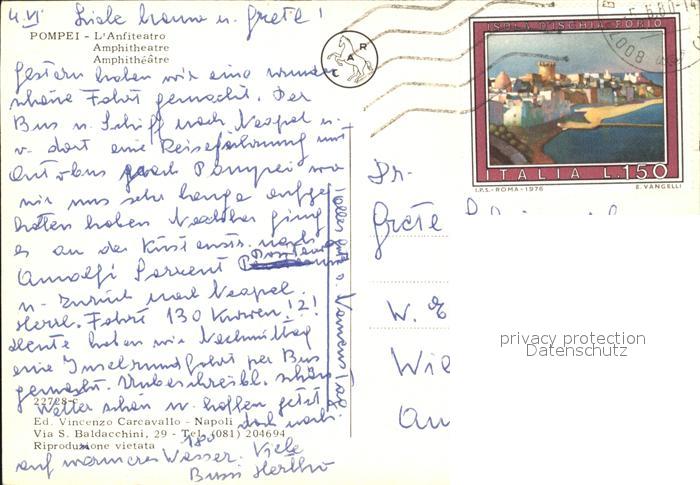 4.VI Liebe Hanno u. Grete!
POMPEI - L'Anfiteatro
Amphitheatre
Amphithéâtre
Gestern haben wir eine wunder
schöne Fahrt gemacht. Per
Bus u. Schiff nach Neapel u.
v. dort eine Reiseführung mit
Autobus nach Pompei wo
wir uns sehr lange aufge
halten haben Nachher ging
es an der Küstenstr. nach
Amalfi Sorrent Positano
u. zurück nach Neapel.
Herrl. Fahrt 130 Kurven!2!
Heute haben wir Nachmittag
eine Inselrundfahrt per Bus
gemacht. Unbeschreibl. schön
Wetter schön u. hoffen jetzt
22728-c
Ed. Vincenzo Carcavallo - Napoli
doch noch
Via S. Baldacchini, 29 - Tel. (081) 204694
Riproduzione vietata
auf wärmeres Wasser. Viele
Bussi Hertha
Alles Gute z. Namenstag
A R
ISOLA D'ISCHIA FORIO
ITALIA L.150
I.P.S.-ROMA-1976 E. VANGELLI
Grete
W.
Wie
privacy protection
Datenschutz